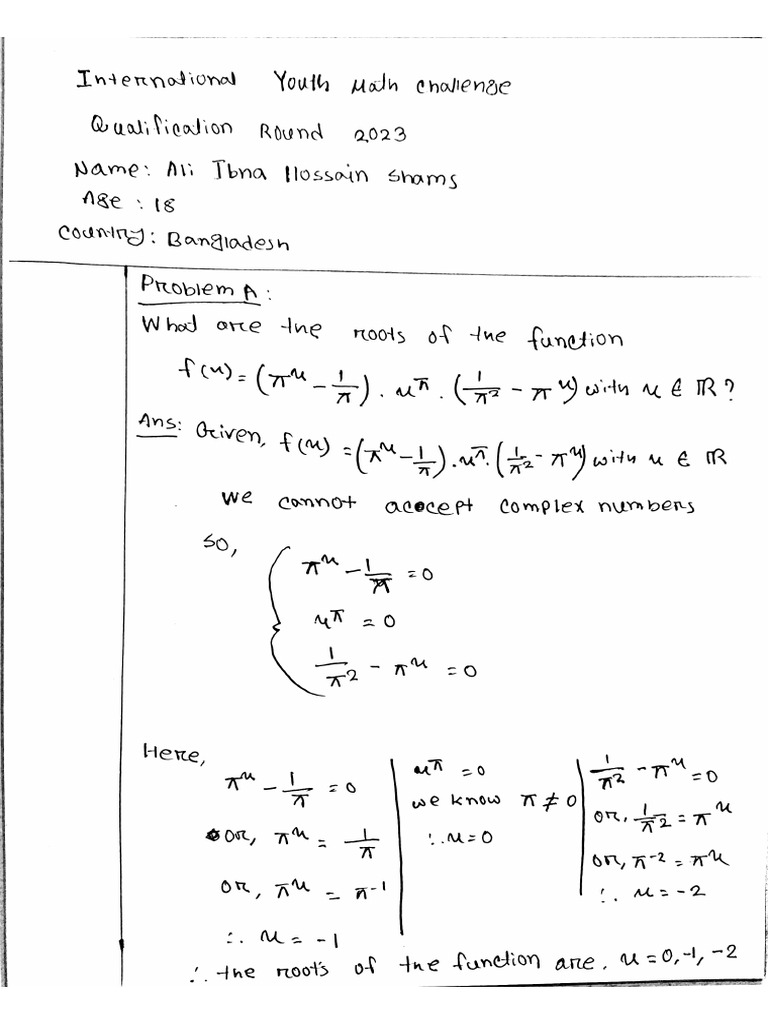 International Youth Math Challenge
Qualification Round 2023
Name: Ali Ibna Hossain Shams
Age : 18
Country: Bangladesh
Problem A:
What are the roots of the function
f(x) = (π^x - 1/π) . x^π . (1/π^2 - π^x) with x ∈ ℝ?
Ans: Given, f(x) = (π^x - 1/π) . x^π . (1/π^2 - π^x) with x ∈ ℝ
we cannot accept complex numbers
So,
π^x - 1/π = 0
x^π = 0
1/π^2 - π^x = 0
Here,
π^x - 1/π = 0
or, π^x = 1/π
or, π^x = π^-1
∴ x = -1
x^π = 0
we know π ≠ 0
∴ x = 0
1/π^2 - π^x = 0
or, 1/π^2 = π^x
or, π^-2 = π^x
∴ x = -2
∴ the roots of the function are, x = 0, -1, -2